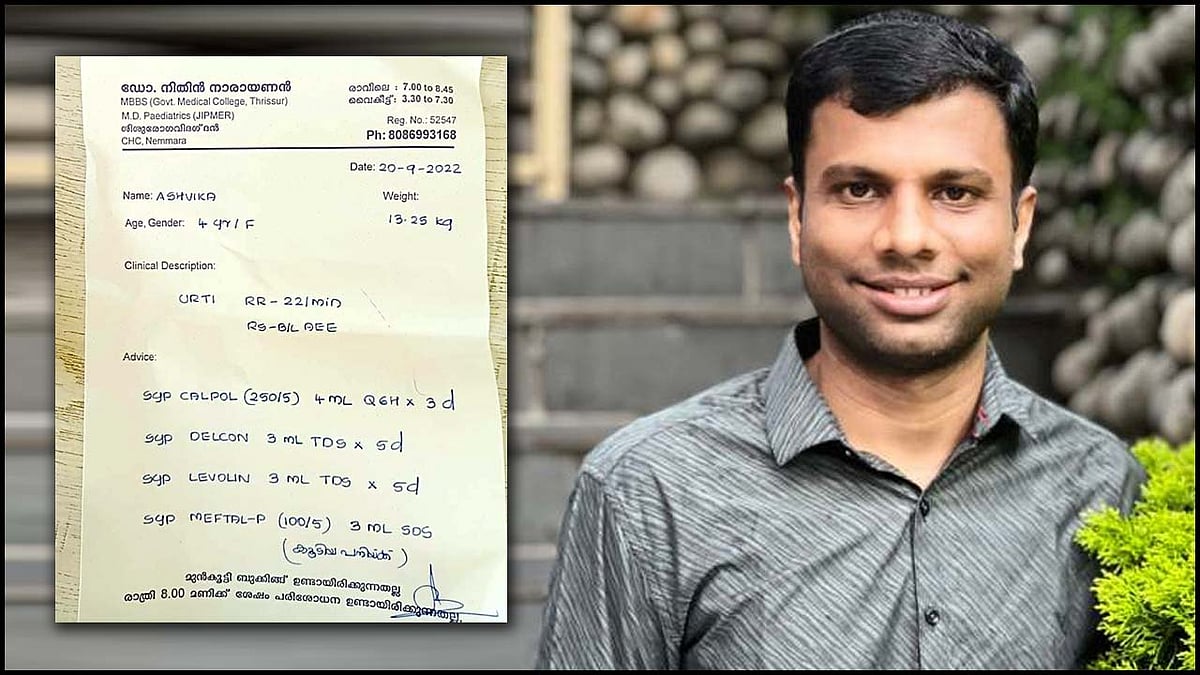 ഡോ. നിതിൻ നാരായണൻ
MBBS (Govt. Medical College, Thrissur)
M.D. Paediatrics (JIPMER)
ശിശുരോഗവിദഗ്ദൻ
CHC, Nemmara
രാവിലെ : 7.00 to 8.45
വൈകീട്ട്: 3.30 to 7.30
Reg. No.: 52547
Ph: 8086993168
Date: 20-9-2022
Name: ASHVIKA
Weight:
Age, Gender: 4 yr / F
13.25 kg
Clinical Description:
URTI RR - 22/min
RS - B/L AEE
Advice:
Syp CALPOL (250/5) 4 ML Q6H x 3 d
Syp DELCON 3 ML TDS x 5d
Syp LEVOLIN 3 ML TDS x 5d
Syp MEFTAL-P (100/5) 3 ML SOS
(കൂടിയ പനിയ്ക്ക്)
മുൻകൂട്ടി ബുക്കിങ്ങ് ഉണ്ടായിരിക്കുന്നതല്ല
രാത്രി 8.00 മണിക്ക് ശേഷം പരിശോധന ഉണ്ടായിരിക്കുന്നതല്ല.